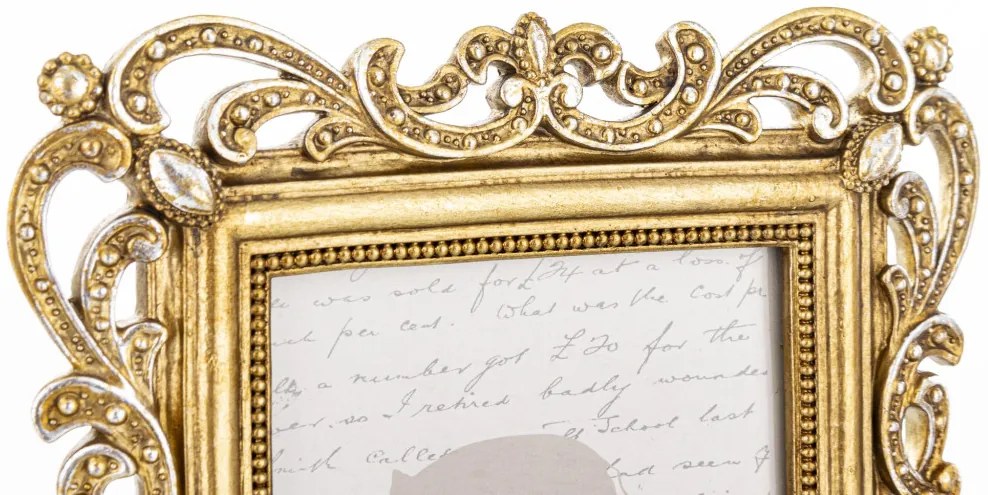 was sold for £24 at a loss of
per cent. What was the cost pr
a number got £20 for the
so I retired badly wounded
School last
called
had seen of